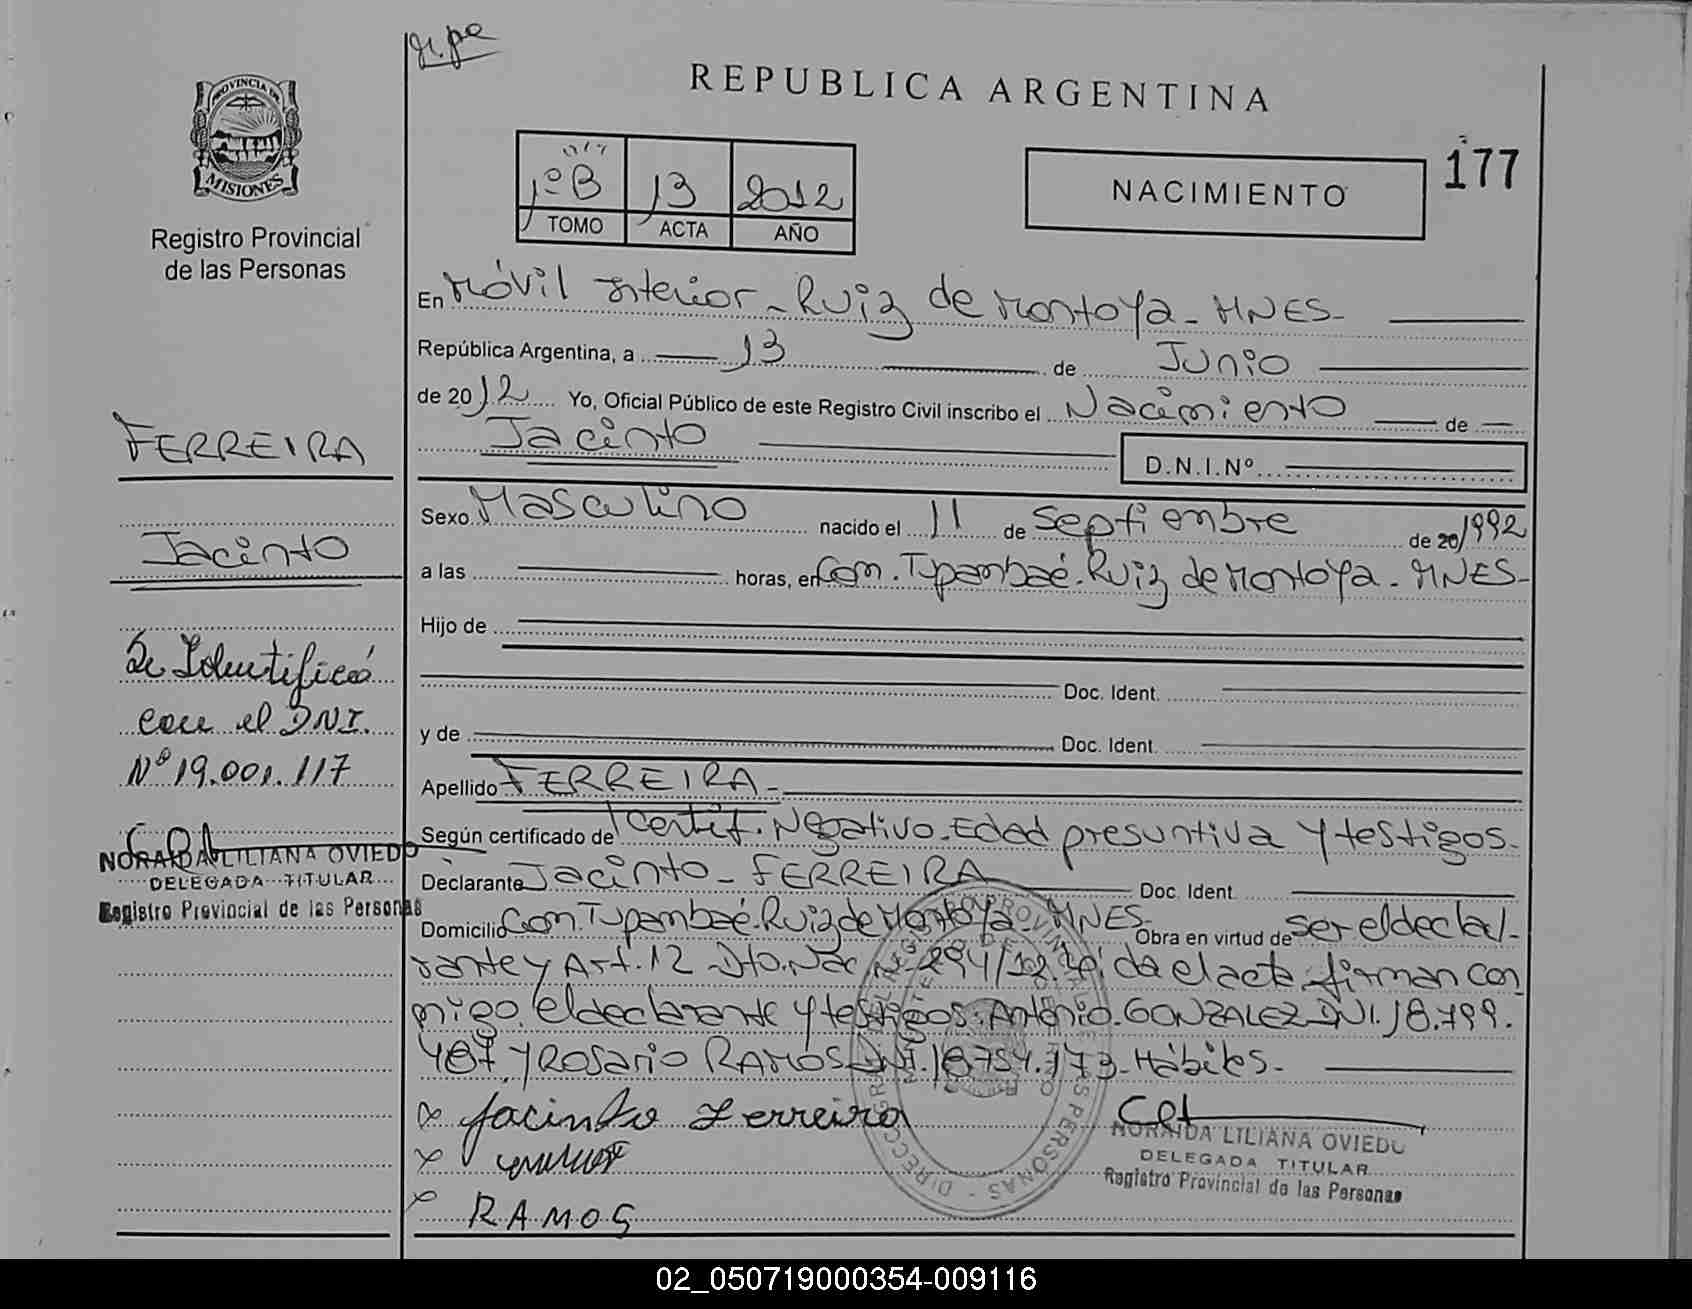 REPUBLICA ARGENTINA
PROVINCIA DE
MISIONES
Registro Provincial
de las Personas
1º B 13 2012
TOMO ACTA AÑO
NACIMIENTO
177
En Móvil Interior - Ruiz de Montoya - MNES -
República Argentina, a 13 de Junio
de 2012 Yo, Oficial Público de este Registro Civil inscribo el Nacimiento de
Jacinto D.N.I.Nº
Sexo Masculino nacido el 11 de Septiembre de 20 1992
a las horas, en Com. Tupambaé. Ruiz de Montoya - MNES -
Hijo de
Doc. Ident.
y de Doc. Ident.
Apellido FERREIRA -
Según certificado de Certif. Negativo - Edad presuntiva y testigos -
Declarante Jacinto - FERREIRA Doc. Ident.
Domicilio Com. Tupambaé. Ruiz de Montoya - MNES - Obra en virtud de ser el decla/-
rante y Art. 12 - Dto. Nac. Nº 294/12 da el acta, firman con
migo, el declarante y testigos: Antonio GONZALEZ DNI. 18.799.
487 y Rosario RAMOS DNI. 18.754.173 - Hábiles -
x Jacinto Ferreira
x
x RAMOS
NORAIDA LILIANA OVIEDO
DELEGADA TITULAR
Registro Provincial de las Personas
FERREIRA
Jacinto
Se Identificó
con el DNI.
Nº 19.001.117
NORAIDA LILIANA OVIEDO
DELEGADA TITULAR
Registro Provincial de las Personas
02_050719000354-009116